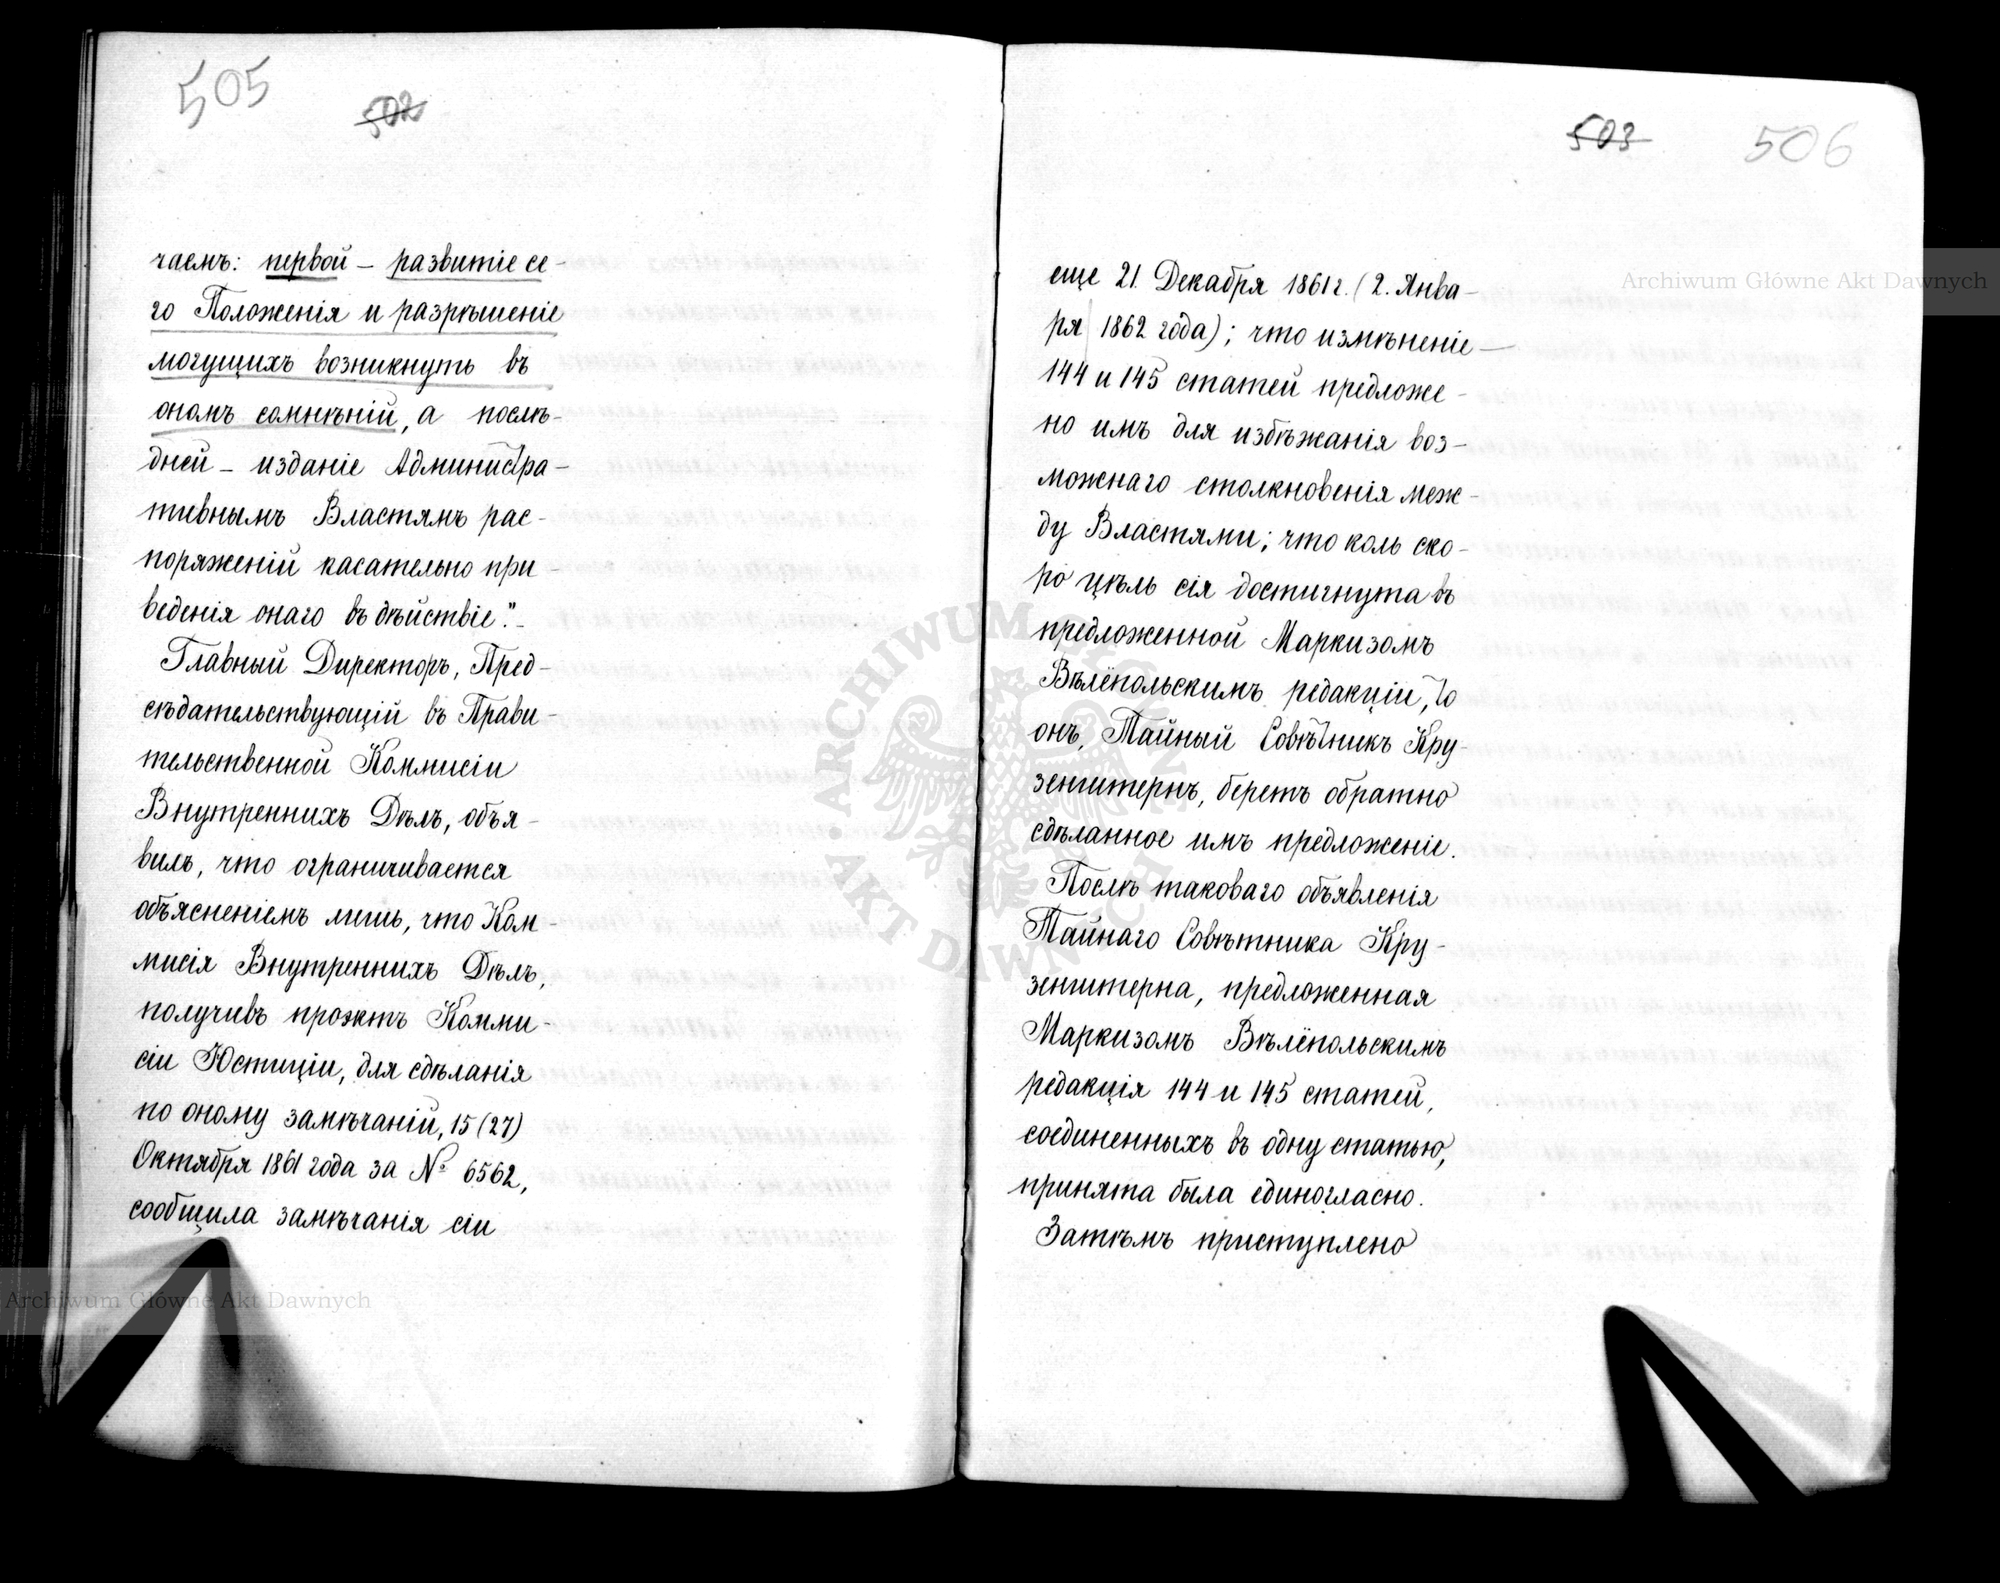 505
502
чаемъ: первой – развитіе се-
го Положенія и разрѣшеніе
могущихъ возникнуть въ
ономъ сомнѣній, а послѣ-
дней – изданіе Администра-
тивнымъ Властямъ рас-
поряженій касательно при-
веденія онаго въ дѣйствіе".–
Главный Директоръ, Пред-
сѣдательствующій въ Прави-
тельственной Коммисіи
Внутреннихъ Дѣлъ, объя-
вилъ, что ограничивается
объясненіемъ лишь, что Ком-
мисія Внутреннихъ Дѣлъ,
получивъ проэктъ Комми-
сіи Юстиціи, для сдѣланія
по оному замѣчаній, 15 (27)
Октября 1861 года за № 6562,
сообщила замѣчанія сіи
503
506
еще 21. Декабря 1861 г. (2. Янва-
ря 1862 года); что измѣненіе –
144 и 145 статей предложе-
но имъ для избѣжанія воз-
можнаго столкновенія меж-
ду Властями; что коль ско-
ро цѣль сія достигнута въ
предложенной Маркизомъ
Вѣлёпольскимъ редакціи, то
онъ, Тайный Совѣтникъ Кру-
зенштернъ, беретъ обратно
сдѣланное имъ предложеніе.
Послѣ таковаго объявленія
Тайнаго Совѣтника Кру-
зенштерна, предложенная
Маркизомъ Вѣлёпольскимъ
редакція 144 и 145 статей,
соединенныхъ въ одну статью,
принята была единогласно.
Затѣмъ приступлено
Archiwum Główne Akt Dawnych
Archiwum Główne Akt Dawnych
ARCHIWUM GŁÓWNE AKT DAWNYCH